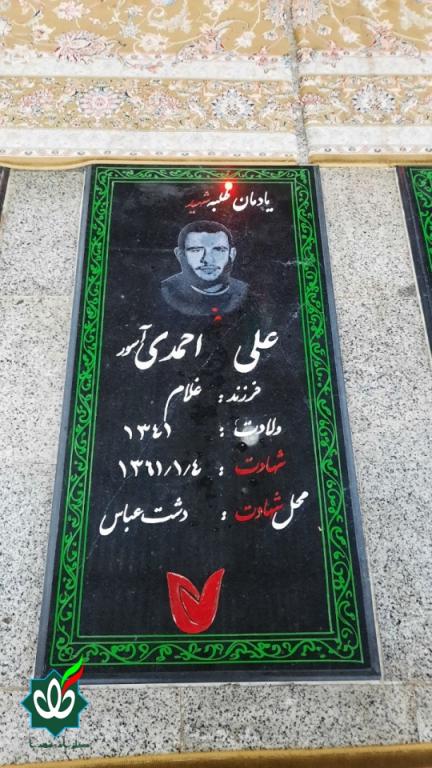 یادمان طلبه شهید
علی احمدی آسور
فرزند : غلام
ولادت : ۱۳۴۱
شهادت : ۱۳۶۱/۱/۴
محل شهادت : دشت عباس